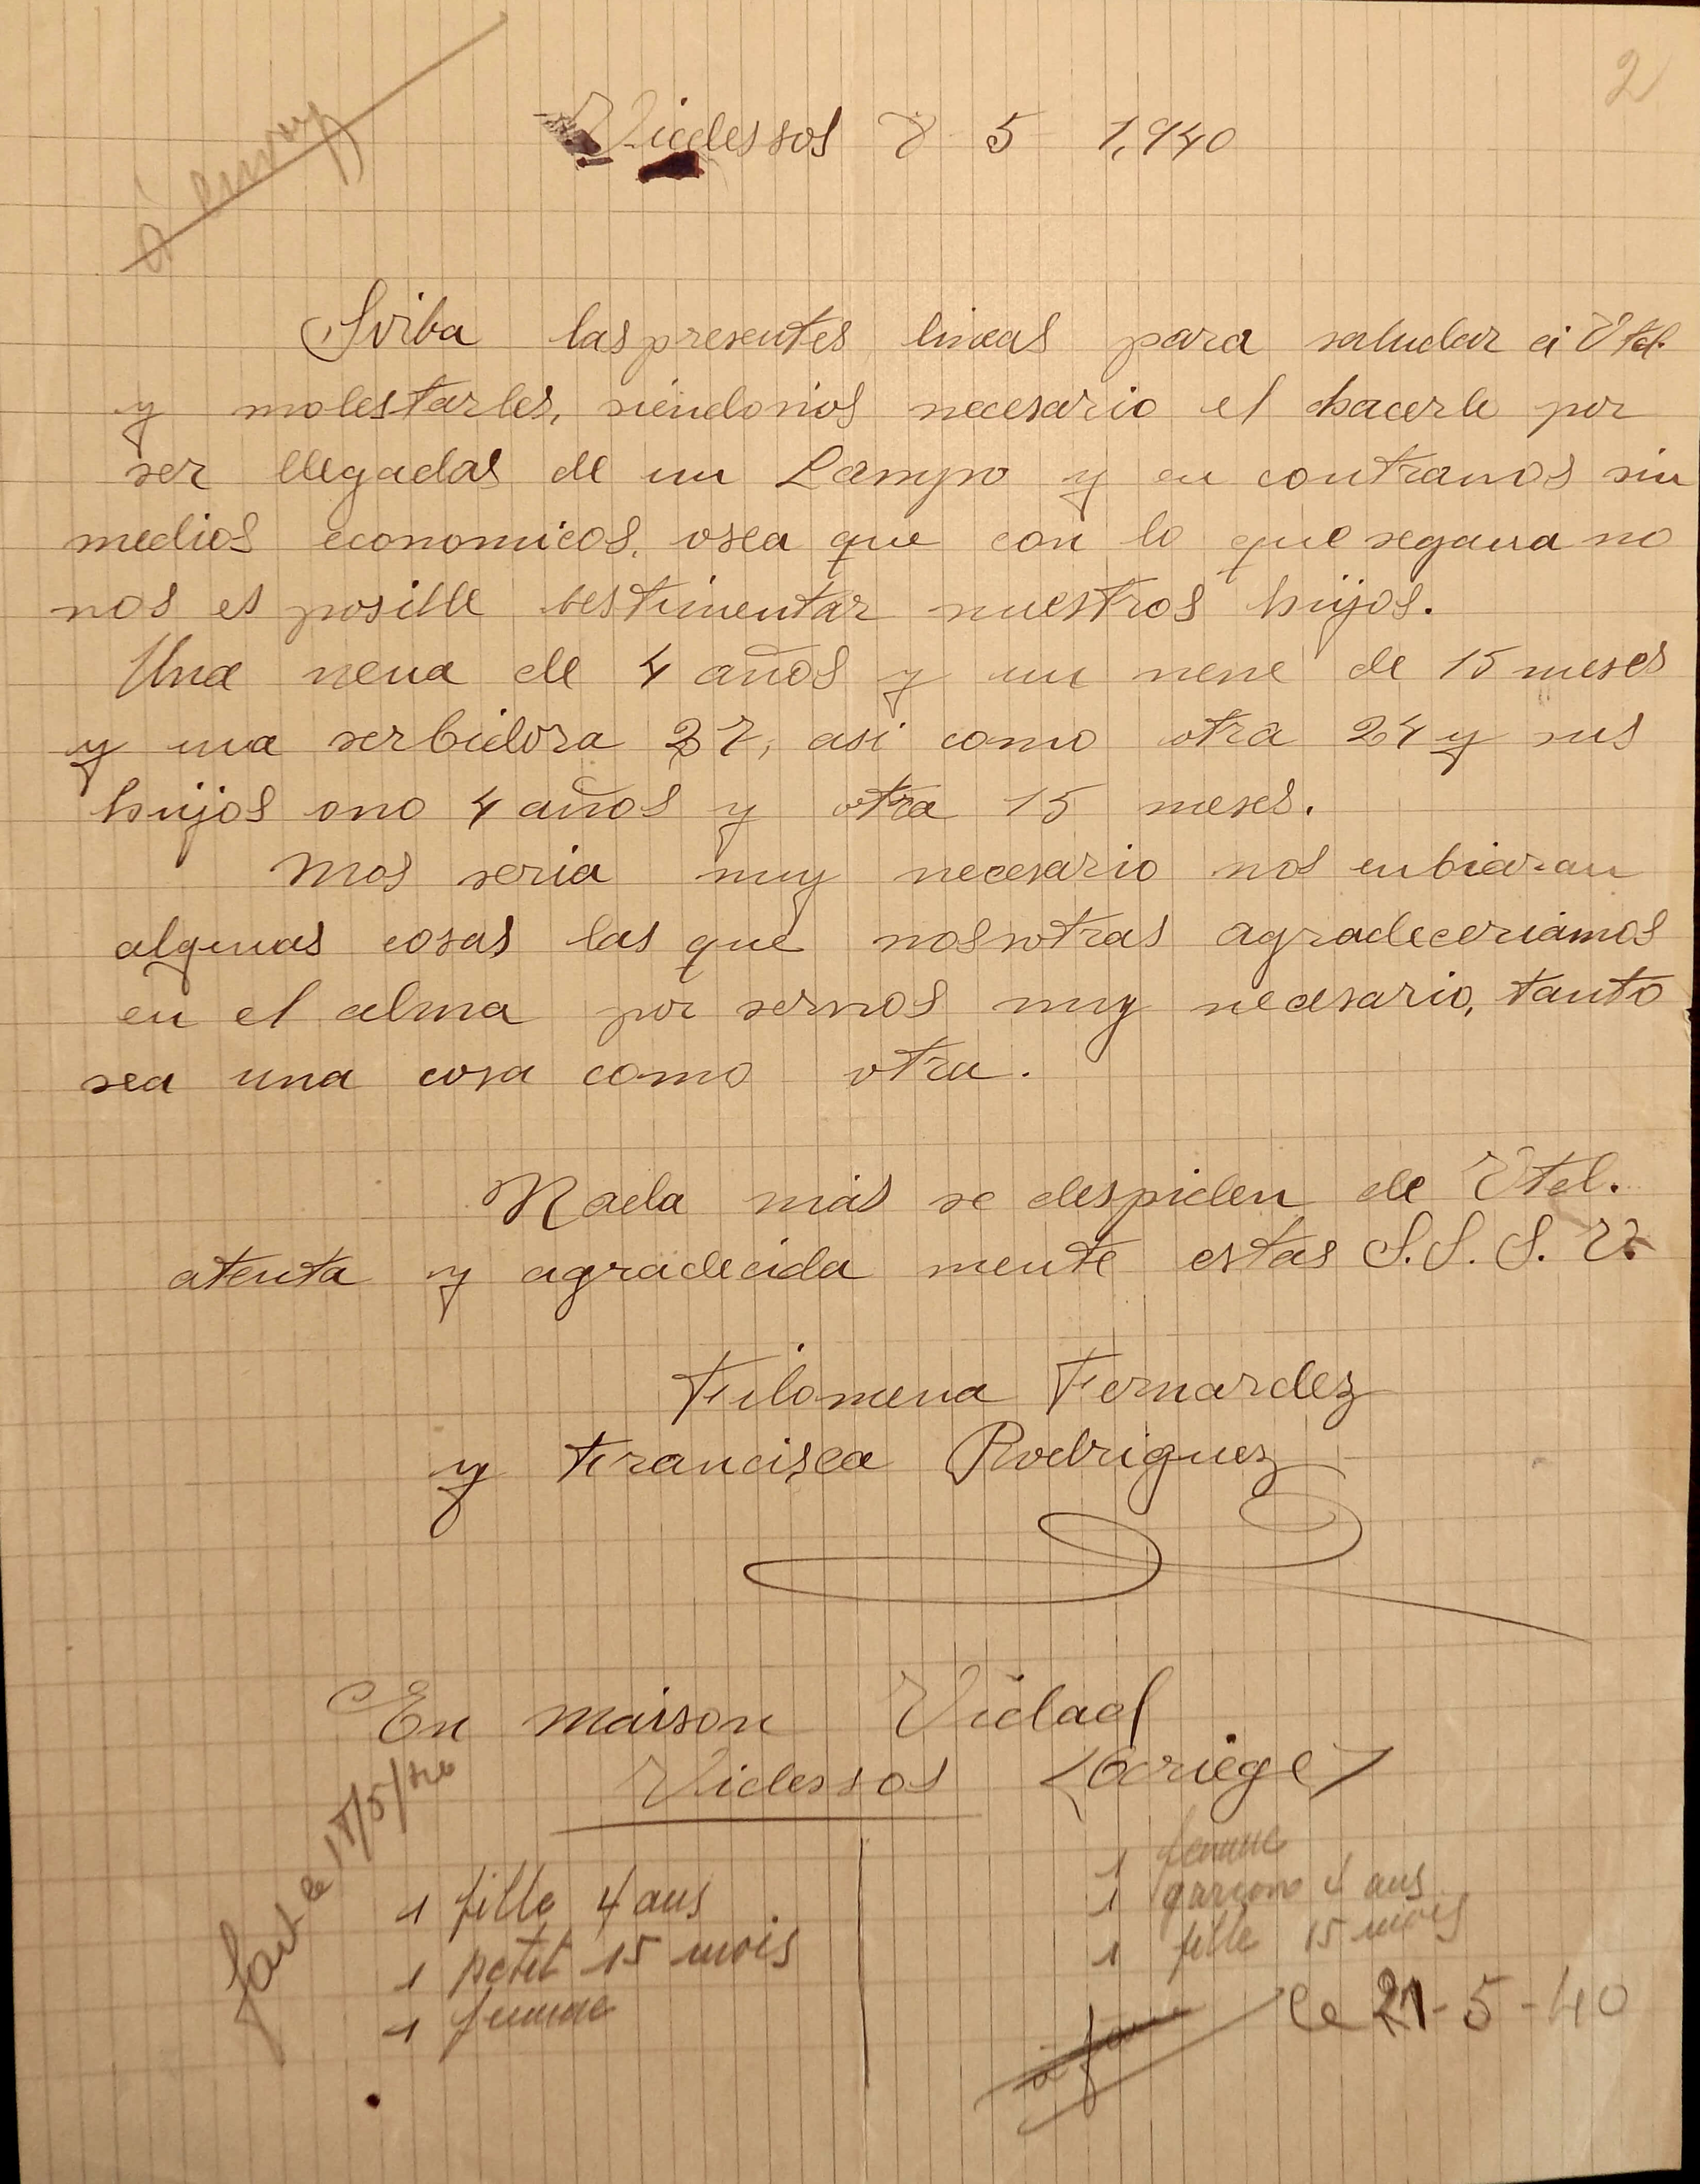 2
Vicdessos 8 - 5 - 1,940
Sirba las presentes lineas para saludar a Vtd.
y molestarles, siendonos necesario el hacerlo por
ser llegadas de un Campo y en contranos sin
medios economicos, osea que con lo que segana no
nos es posible bestimentar nuestros huijos.
Una nena de 4 años y un nene de 15 meses
y una serbidora 27, asi como otra 24 y sus
huijos ono 4 años y otra 15 meses.
Mos seria muy necesario nos enbiaran
algunas cosas las que nosotras agradeceriamos
en el alma por sernos muy necesario, tanto
sea una cosa como otra.
Nada más se despiden de Vtd.
atenta y agradecida mente estas S.S.S. V.
Filomena Fernardez
y Francisca Rodriguez
En maison Vidad
Videssos <Ariege>
fait le 18/5/40
1 fille 4 ans
1 petit 15 mois
1 femme
1 femme
1 garçon 4 ans
1 fille 15 mois
le 21-5-40